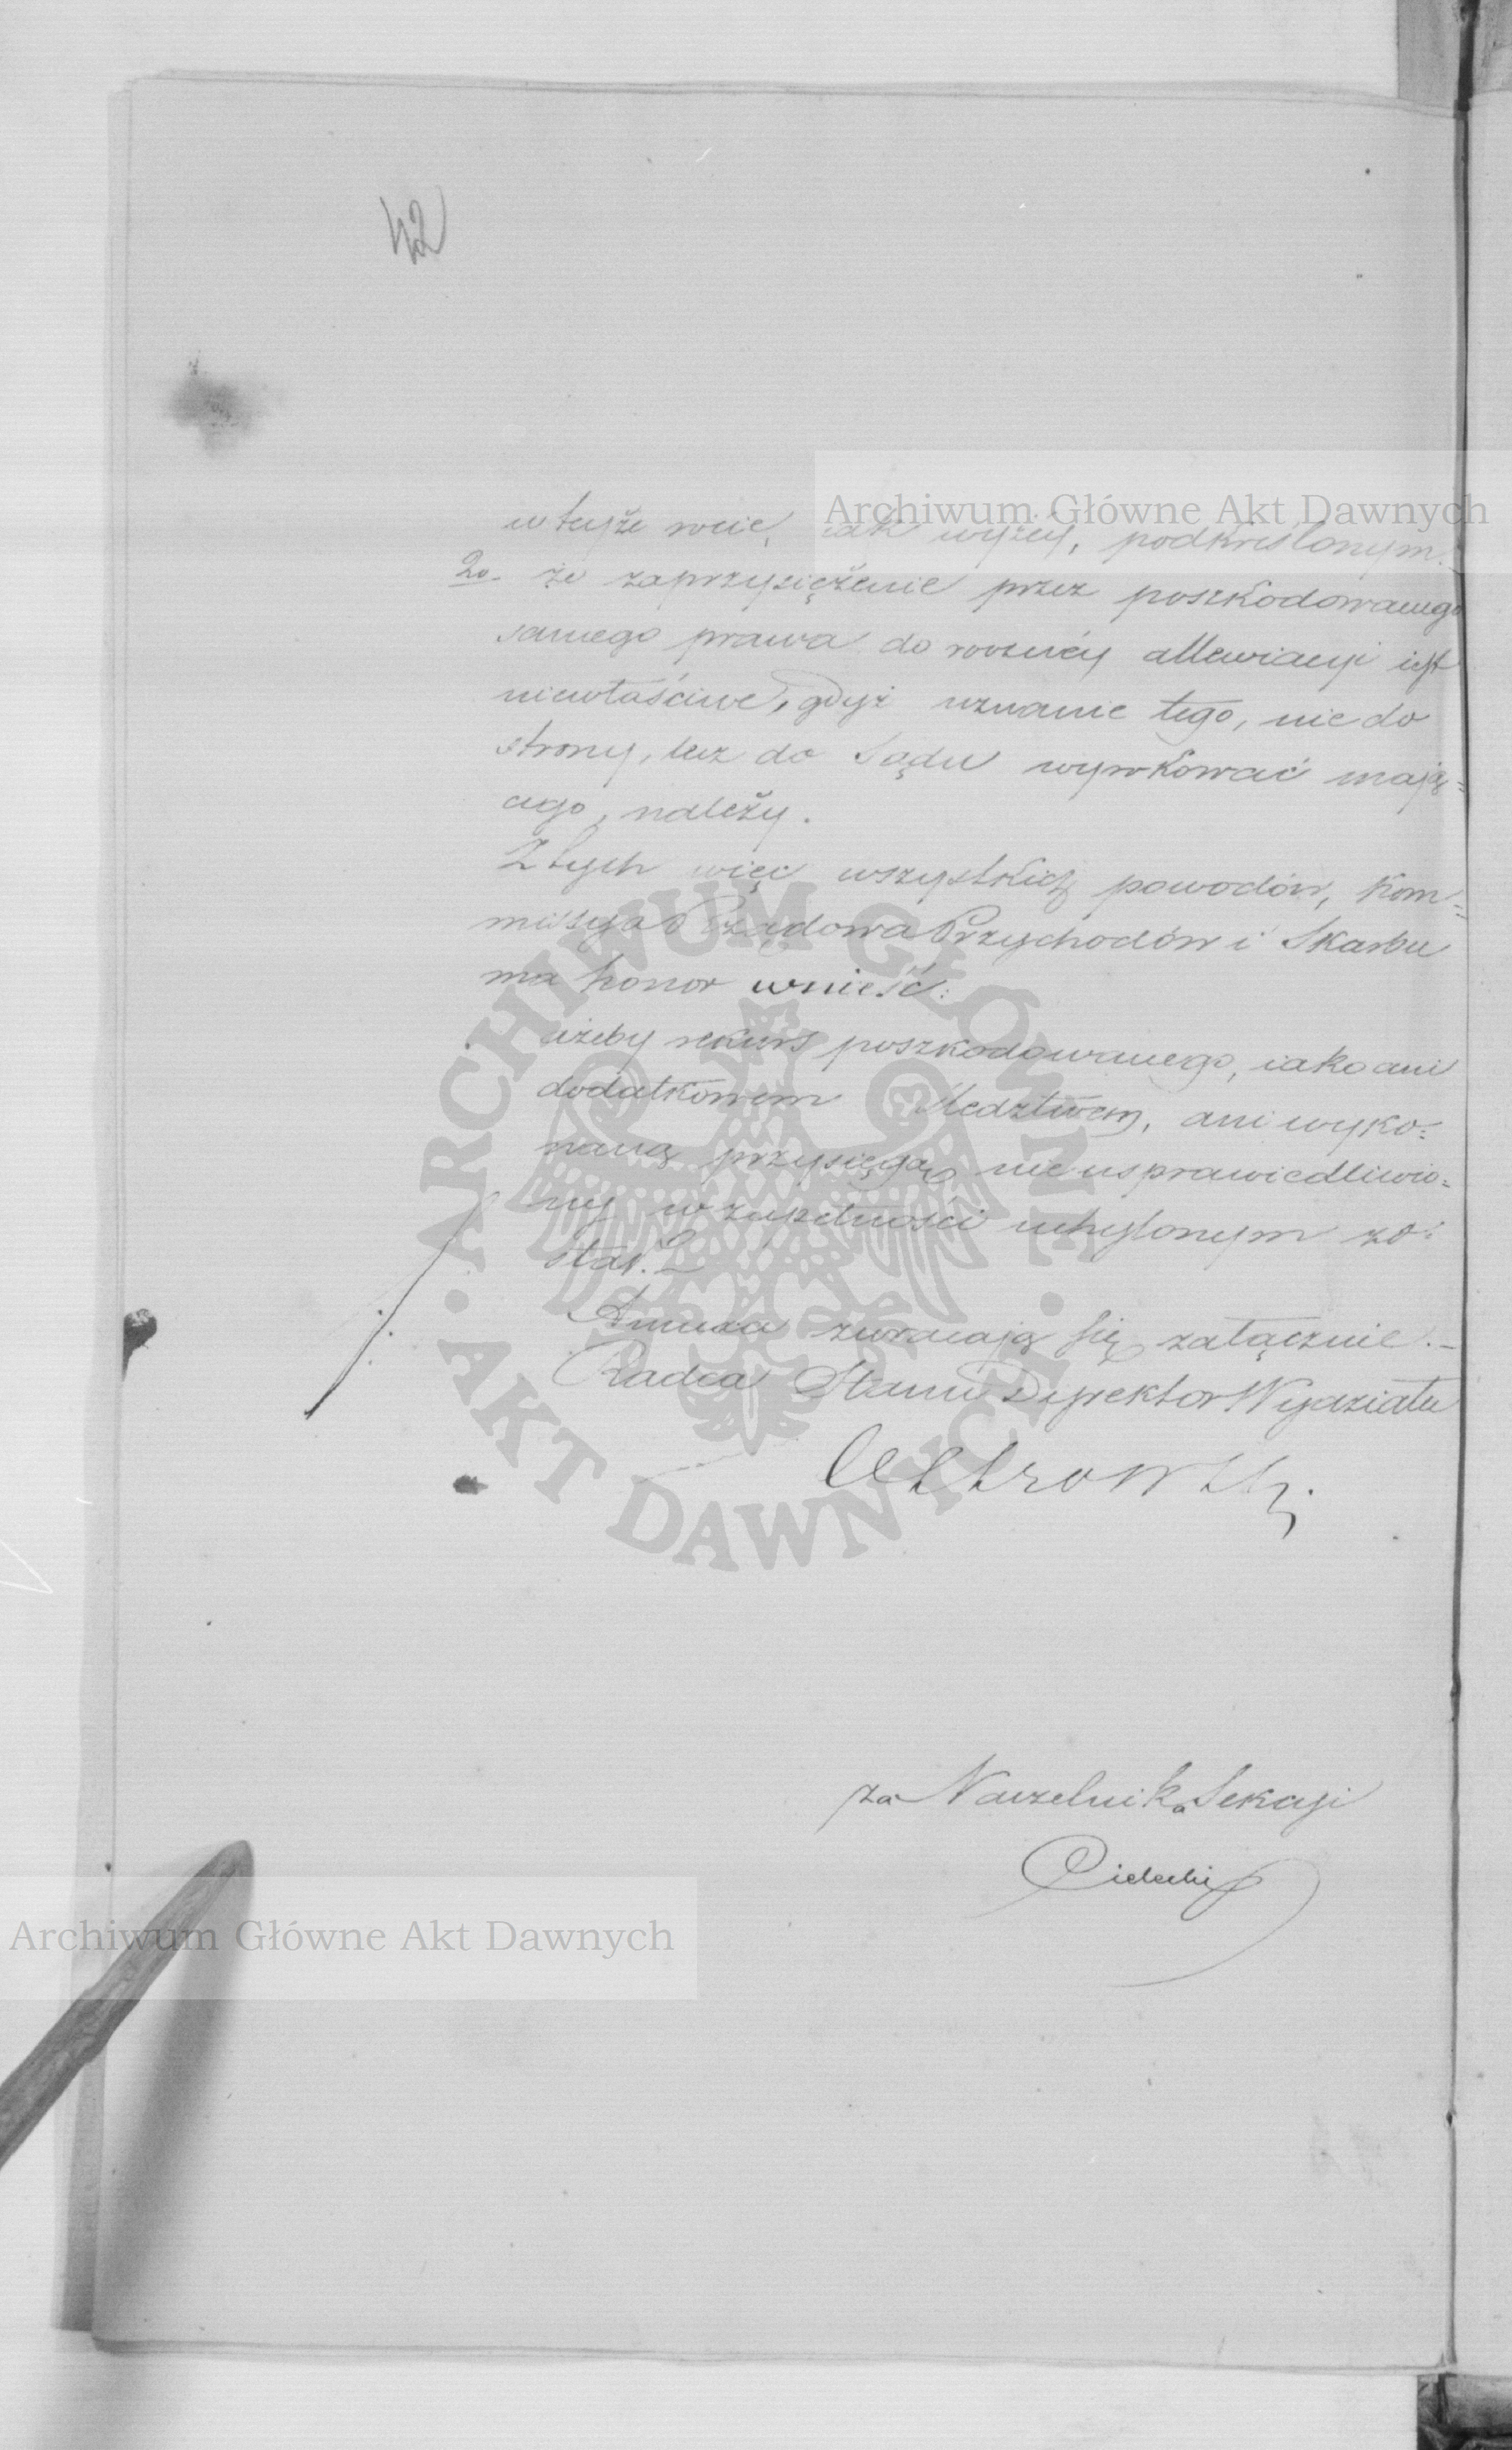 42
Archiwum Główne Akt Dawnych
w teyże rocie, iak wyżéy, podkreślonym.
2o. że zaprzysiężenie przez poszkodowanego
samego prawa do roczney allewiacyi iest
niewłaściwe, gdyż uznanie tego, nie do
strony, lecz do Sądu wyrokować mają=
cego, należy.
Z tych więc wszystkich powodów, Kom=
missya Rządowa Przychodów i Skarbu
ma honor wnieść:
ażeby rekurs poszkodowanego, iako ani
dodatkowem śledztwem, ani wyko=
naną przysięgą nieusprawiedliwio=
ny w zupełności uchylonym zo=
stał.
Annexa zwracają się załącznie.
Radca Stanu Dyrektor Wydziału
za Naczelnika Sekcyi
Archiwum Główne Akt Dawnych
ARCHIWUM GŁÓWNE AKT DAWNYCH